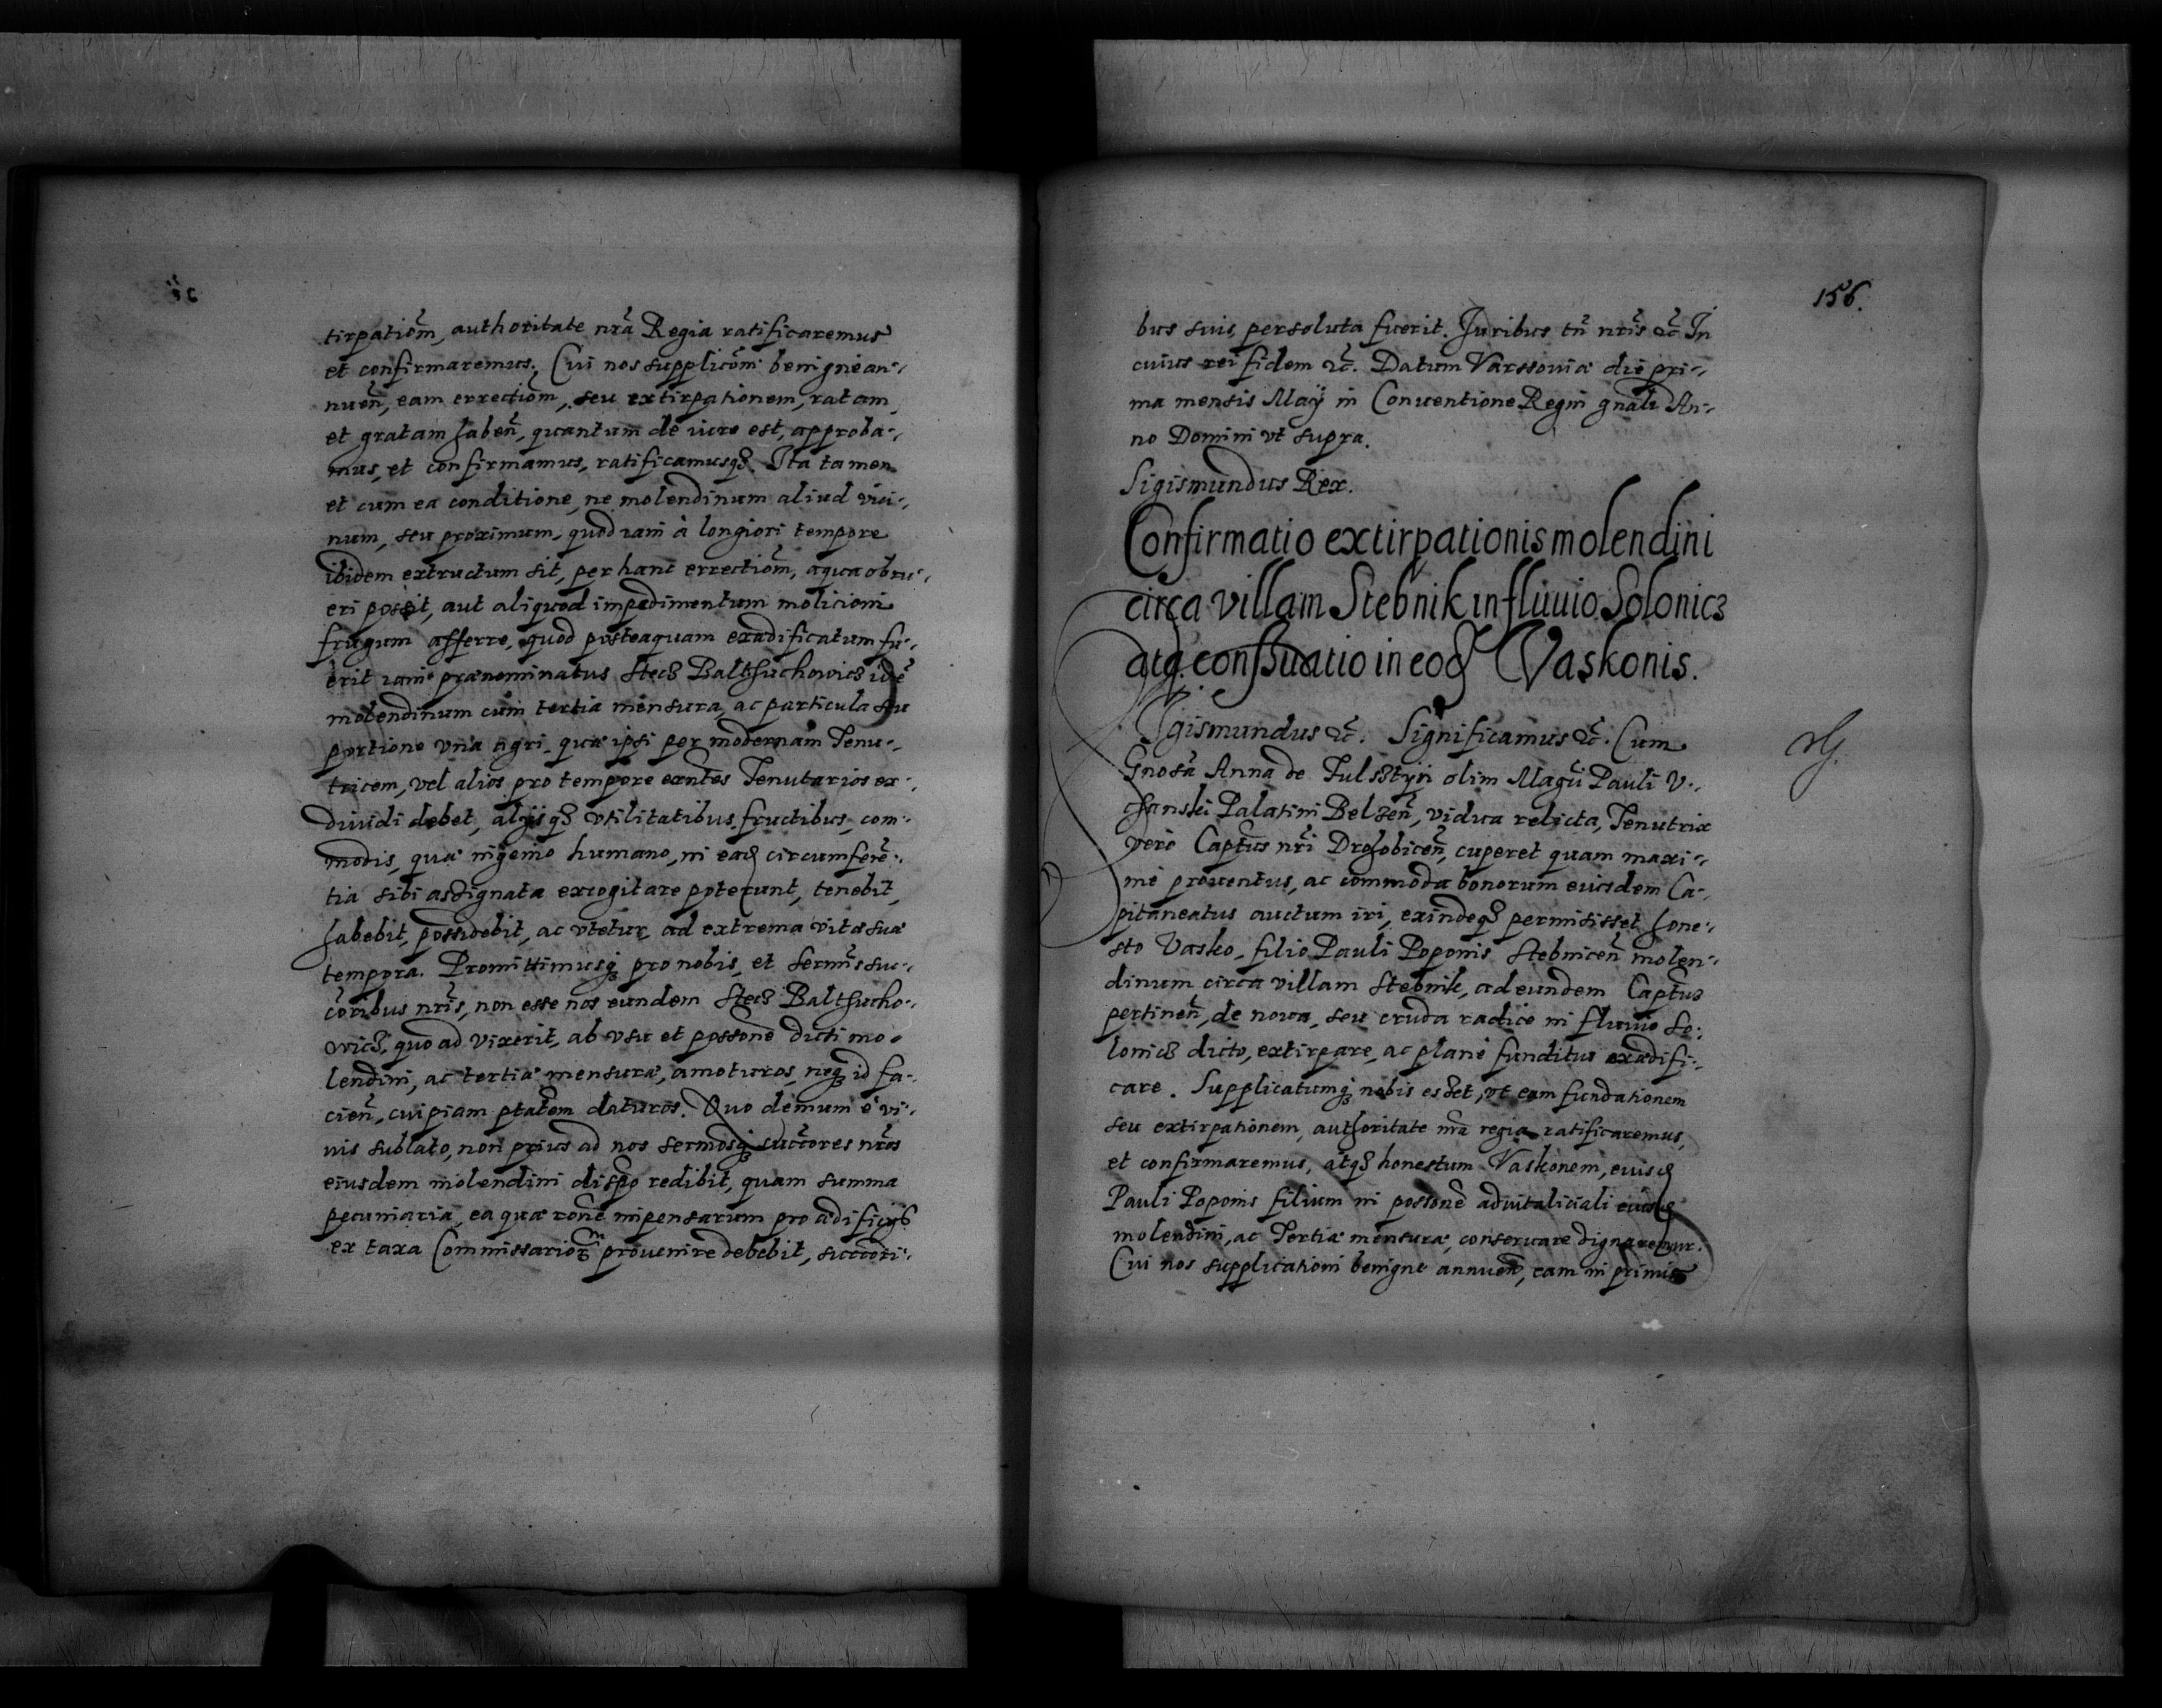 tirpatiõm, authoritate nr̃a Regia ratificaremus
et confirmaremus. Cui nos supplicõni benigne an-
nueñ, eam errectiõm, seu extirpationem, ratam
et gratam habeñ, quantum de iure est, approba-
mus, et confirmamus, ratificamusq3. Ita tamen
et cum ea conditione, ne molendinum aliud vici-
num, seu proximum, quod iam à longiori tempore
ibidem extructum sit, per hanc errectiõm, aqua obru-
eri possit, aut aliquod impedimentum molicioni
frugum afferre, quod posteaquam exædificatum fu-
erit iam prænominatus Stec3 Balthuchowic3 idẽ
molendinum cum tertia mensura, ac particula seu
portione vna agri, quæ ipsi per modernam Tenu-
tricem, vel alios pro tempore exñtes Tenutarios ex-
diuidi debet, alijsq3 vtilitatibus, fructibus, com-
modis, quæ ingenio humano, in ead circumferẽ-
tia sibi assignata excogitare poterunt, tenebit,
habebit, possidebit, ac vtetur, ad extrema vitæ suæ
tempora. Promittimusq3 pro nobis, et Sermĩs suc-
cõribus nr̃is, non esse nos eundem Stec3 Balthucho-
wic3, quo ad vixerit, ab vsu et possone dicti mo-
lendini, ac tertiæ mensuræ, amoturos, neq3 id fa-
cieñ, cuipiam ptatem daturos. Quo demum è vi-
uis sublato, non prius ad nos sermosq3 succ̃ores nr̃os
eiusdem molendini dispo redibit, quam summa
pecuniaria, ea quæ rõne inpensarum pro ædificijs
ex taxa Commissariorm prouenire debebit, succc̃ori-
156.
bus suis, persoluta fuerit. Juribus tñ nr̃is &c̃ In
cuius rei fidem &c̃. Datum Varssouiæ die pri-
ma mensis Maÿ in Conuentione Regni gnali An-
no Domini vt supra.
Sigismundus Rex.
Confirmatio extirpationis molendini
circa villam Stebnik in fluuio Solonic3
atq3 conseruatio in eod Vaskonis.
Sigismundus &c̃. Significamus &c̃. Cum
Gnosa Anna de Fulsstÿn olim Magci Pauli V-
chanski Palatini Belzeñ, vidua relicta, Tenutrix
verò Captus nr̃i Drohobiceñ, cuperet quam maxi-
mè prouentus, ac commoda bonorum eiusdem Ca-
pitaneatus auctum iri, exindeq3 permisisset hone-
sto Vasko, filio Pauli Poponis Stebniceñ molen-
dinum circa villam Stebnik, ad eundem Captus
pertineñ, de noua, seu cruda radice in fluuio So-
lonic3 dicto, extirpare, ac planè funditus exædifi-
care. Supplicatumq3 nobis esset, vt eam fundationem
seu extirpationem, authoritate nr̃a regia ratificaremus,
et confirmaremus, atq3 honestum Vaskonem, eiusd
Pauli Poponis filium in possonẽ aduitaliciali eiusd
molendini, ac Tertiæ mensuræ, conseruare dignaremur.
Cui nos supplicationi benigne annueñ, eam in primis